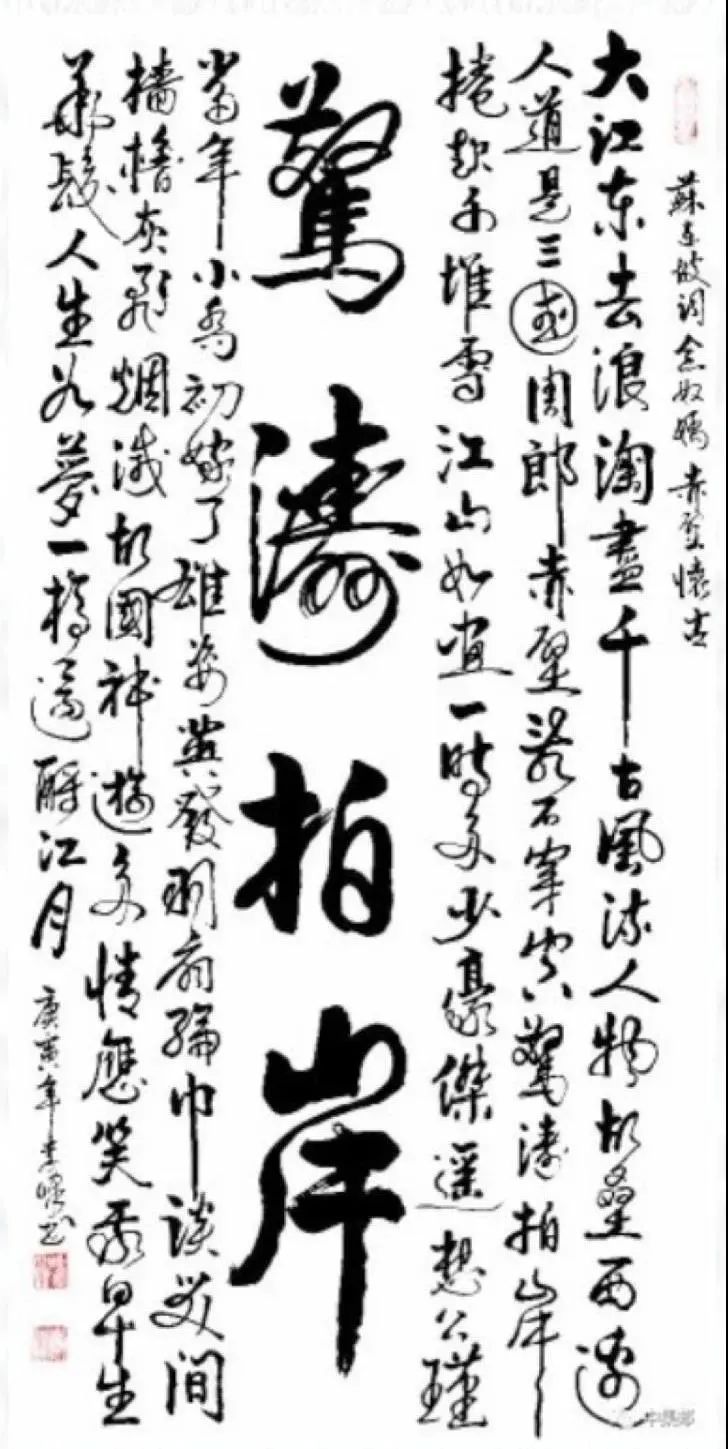 蘇东坡词念奴嬌赤壁懷古
大江东去浪淘盡千古風流人物故壘西邊
人道是三國周郎赤壁乱石穿空驚濤拍岸
捲起千堆雪江山如畫一時多少豪傑遥想公瑾
驚濤拍岸
當年小喬初嫁了雄姿英發羽扇綸巾談笑間
檣櫓灰飛烟滅故國神遊多情應笑我早生
華髮人生如夢一樽還酹江月
庚寅年李书